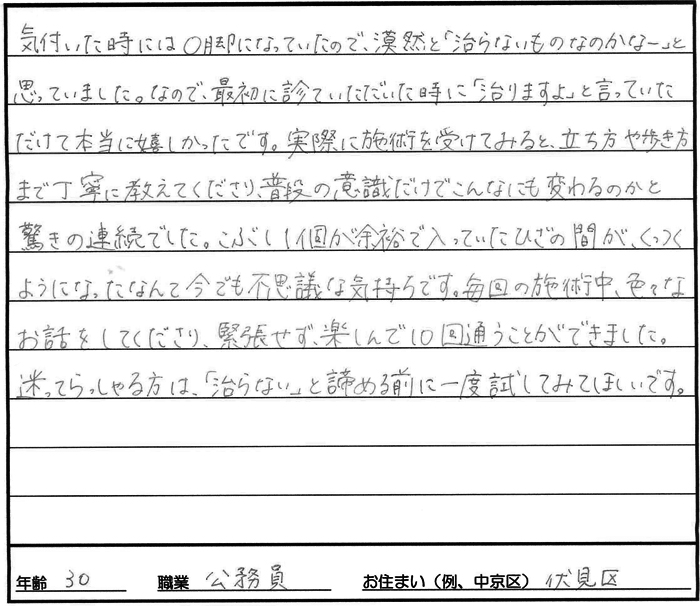 気付いた時にはO脚になっていたので、漠然と「治らないものなのかなー」と
思っていました。なので、最初に診ていただいた時に「治りますよ」と言っていた
だけて本当に嬉しかったです。実際に施術を受けてみると、立ち方や歩き方
まで丁寧に教えてくださり、普段の意識だけでこんなにも変わるのかと
驚きの連続でした。こぶし1個が余裕で入っていたひざの間が、くっつく
ようになったなんて今でも不思議な気持ちです。毎回の施術中、色々な
お話をしてくださり、緊張せず、楽しんで10回通うことができました。
迷ってらっしゃる方は、「治らない」と諦める前に一度試してみてほしいです。
年齢 30 職業 公務員 お住まい（例、中京区） 伏見区